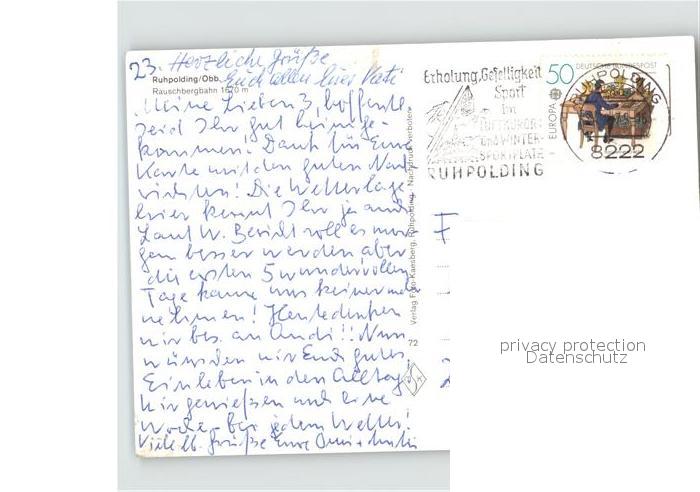 23. Herzliche Grüße
Ruhpolding/Obb. Euch allen Eure Kati
Rauschbergbahn 1670 m
Meine Lieben 3, hoffentl.
seid Ihr gut heimge-
kommen! Dank für Eure
Karte mit den guten Nach-
richten! Die Wetterlage
hier kennt Ihr ja auch
Laut W. Bericht soll es mor-
gen besser werden, aber
die ersten 5 wundervollen
Tage kann uns keiner mehr
nehmen! Heute denken
wir bes. an Andi!! Nun
wünschen wir Euch gutes
Einleben in den Alltag,
wir genießen noch eine
Woche - bei jedem Wetter!
Viele lb. Grüße Eure
Verlag Foto-Kamsberg, Ruhpolding. Nachdruck verboten
72
Erholung, Geselligkeit
Sport
im
LUFTKUROR-
UND WINTER-
SPORTPLATZ-
RUHPOLDING
50 DEUTSCHE BUNDESPOST
EUROPA
RUHPOLDING
8222
privacy protection
Datenschutz